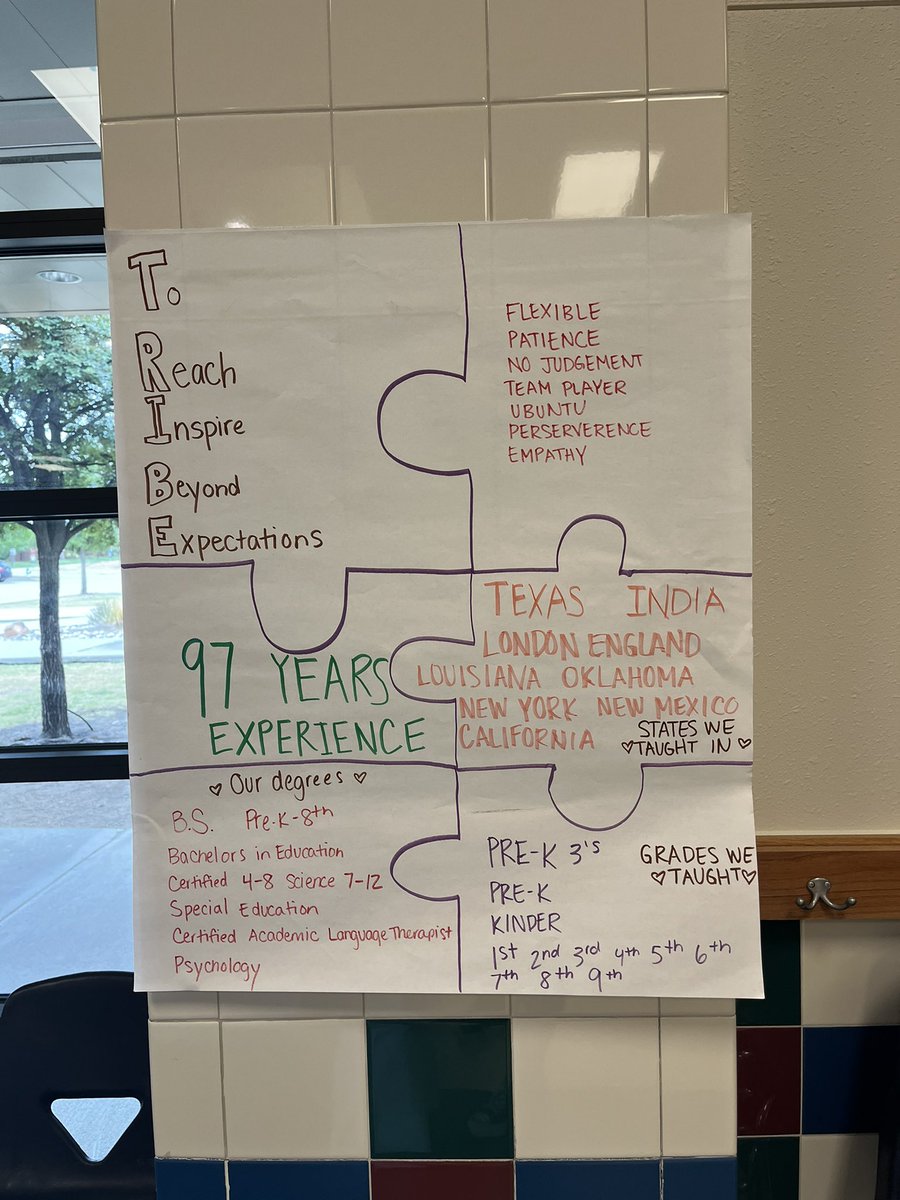 To
Reach
Inspire
Beyond
Expectations
FLEXIBLE
PATIENCE
NO JUDGEMENT
TEAM PLAYER
UBUNTU
PERSERVERENCE
EMPATHY
97 YEARS
EXPERIENCE
TEXAS INDIA
LONDON ENGLAND
LOUISIANA OKLAHOMA
NEW YORK NEW MEXICO
CALIFORNIA
STATES WE
♡TAUGHT IN♡
♡ Our degrees ♡
B.S. Pre-K-8th
Bachelors in Education
Certified 4-8 Science 7-12
Special Education
Certified Academic Language Therapist
Psychology
PRE-K 3's
PRE-K
KINDER
1st 2nd 3rd 4th 5th 6th
7th 8th 9th
GRADES WE
♡TAUGHT♡